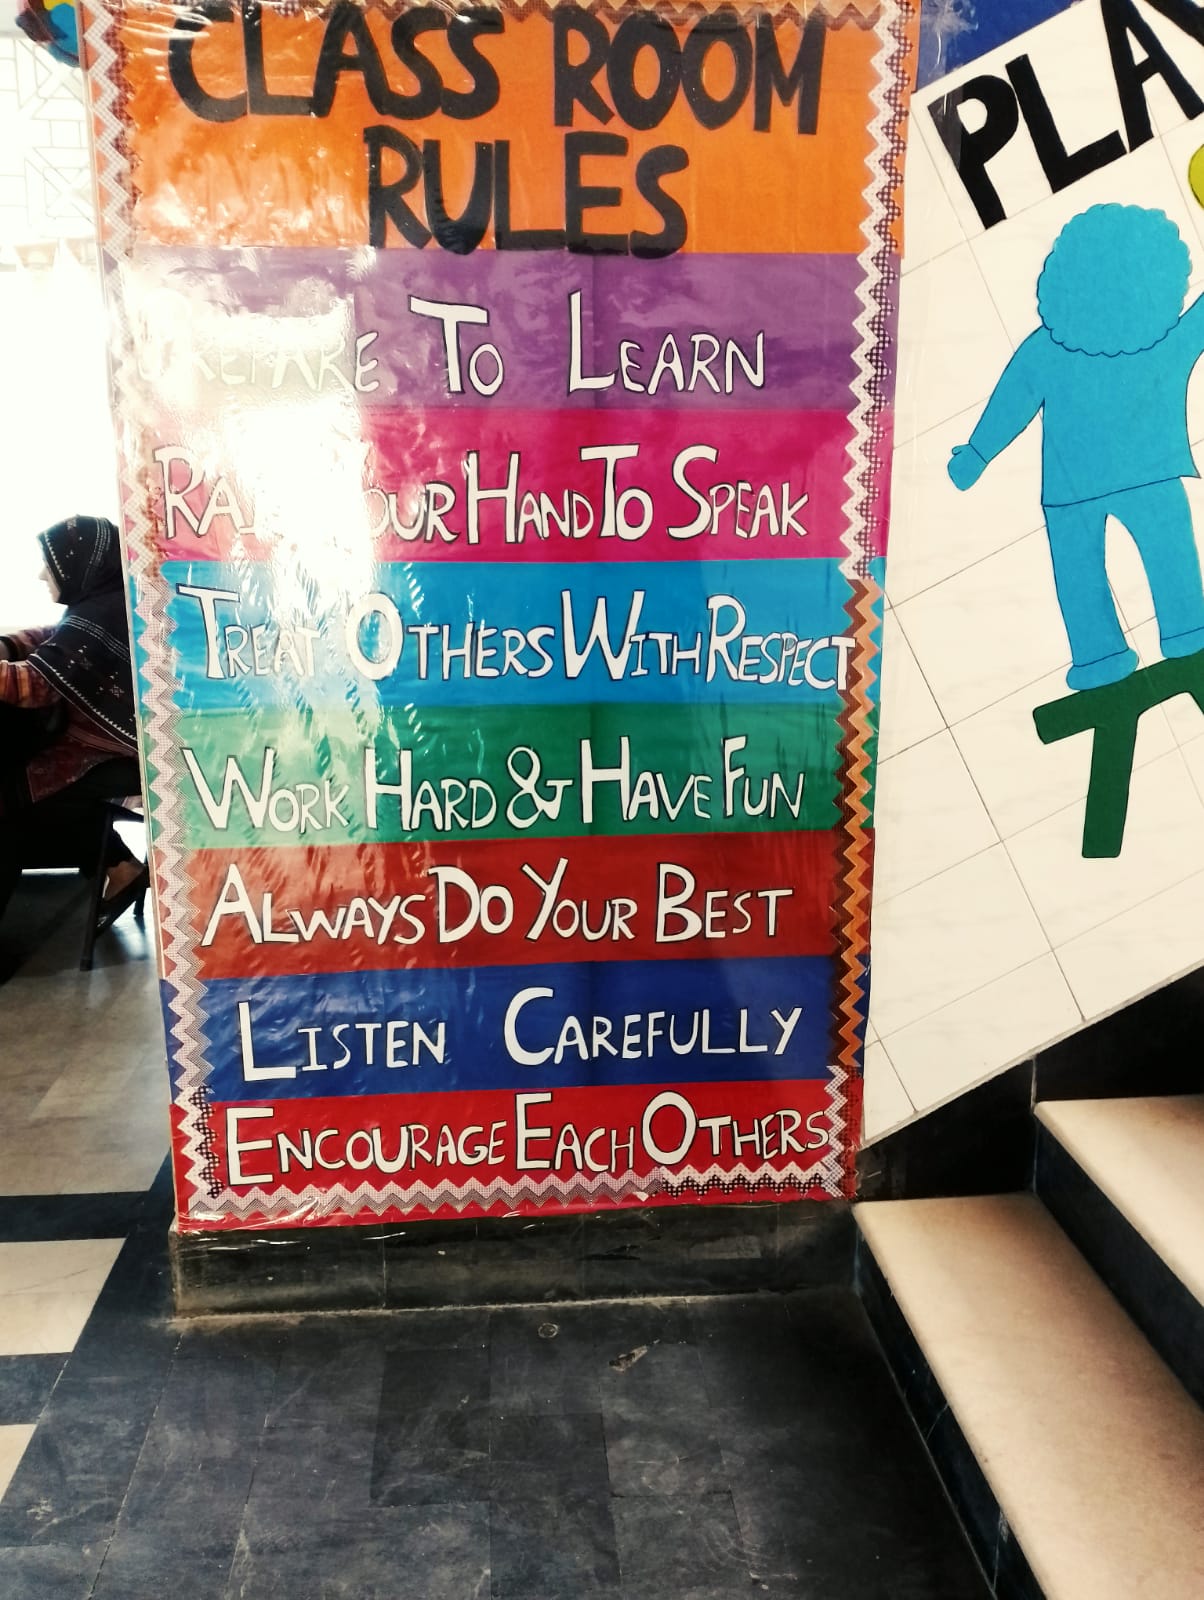 CLASS ROOM
RULES
PREPARE TO LEARN
RAISE YOUR HAND TO SPEAK
TREAT OTHERS WITH RESPECT
WORK HARD & HAVE FUN
ALWAYS DO YOUR BEST
LISTEN CAREFULLY
ENCOURAGE EACH OTHERS